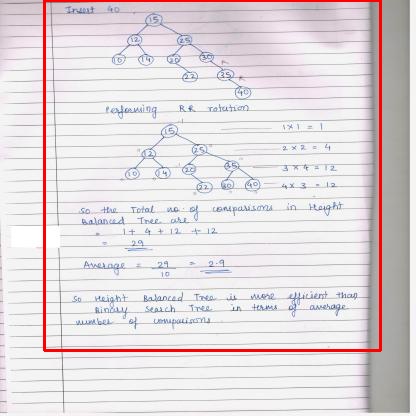 Insert 40
15
12 25
10 14 20 30
22 35
40
Performing RR rotation
15
1 x 1 = 1
12 25
2 x 2 = 4
10 14 20 35
3 x 4 = 12
22 30 40
4 x 3 = 12
So the Total no. of comparisons in Height
Balanced Tree are
= 1 + 4 + 12 + 12
= 29
Average = 29/10 = 2.9
So Height Balanced Tree is more efficient than
Binary Search Tree in terms of average
number of comparisons.